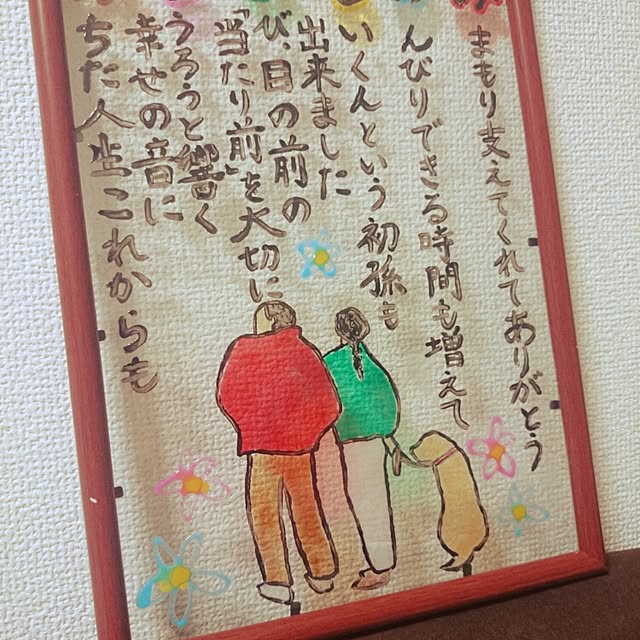 まもり支えてくれてありがとう
んびりできる時間も増えて
いくんという初孫も
出来ました
び、目の前の
「当たり前」を大切に
うろうと響く
幸せの音に
ちた人生これからも